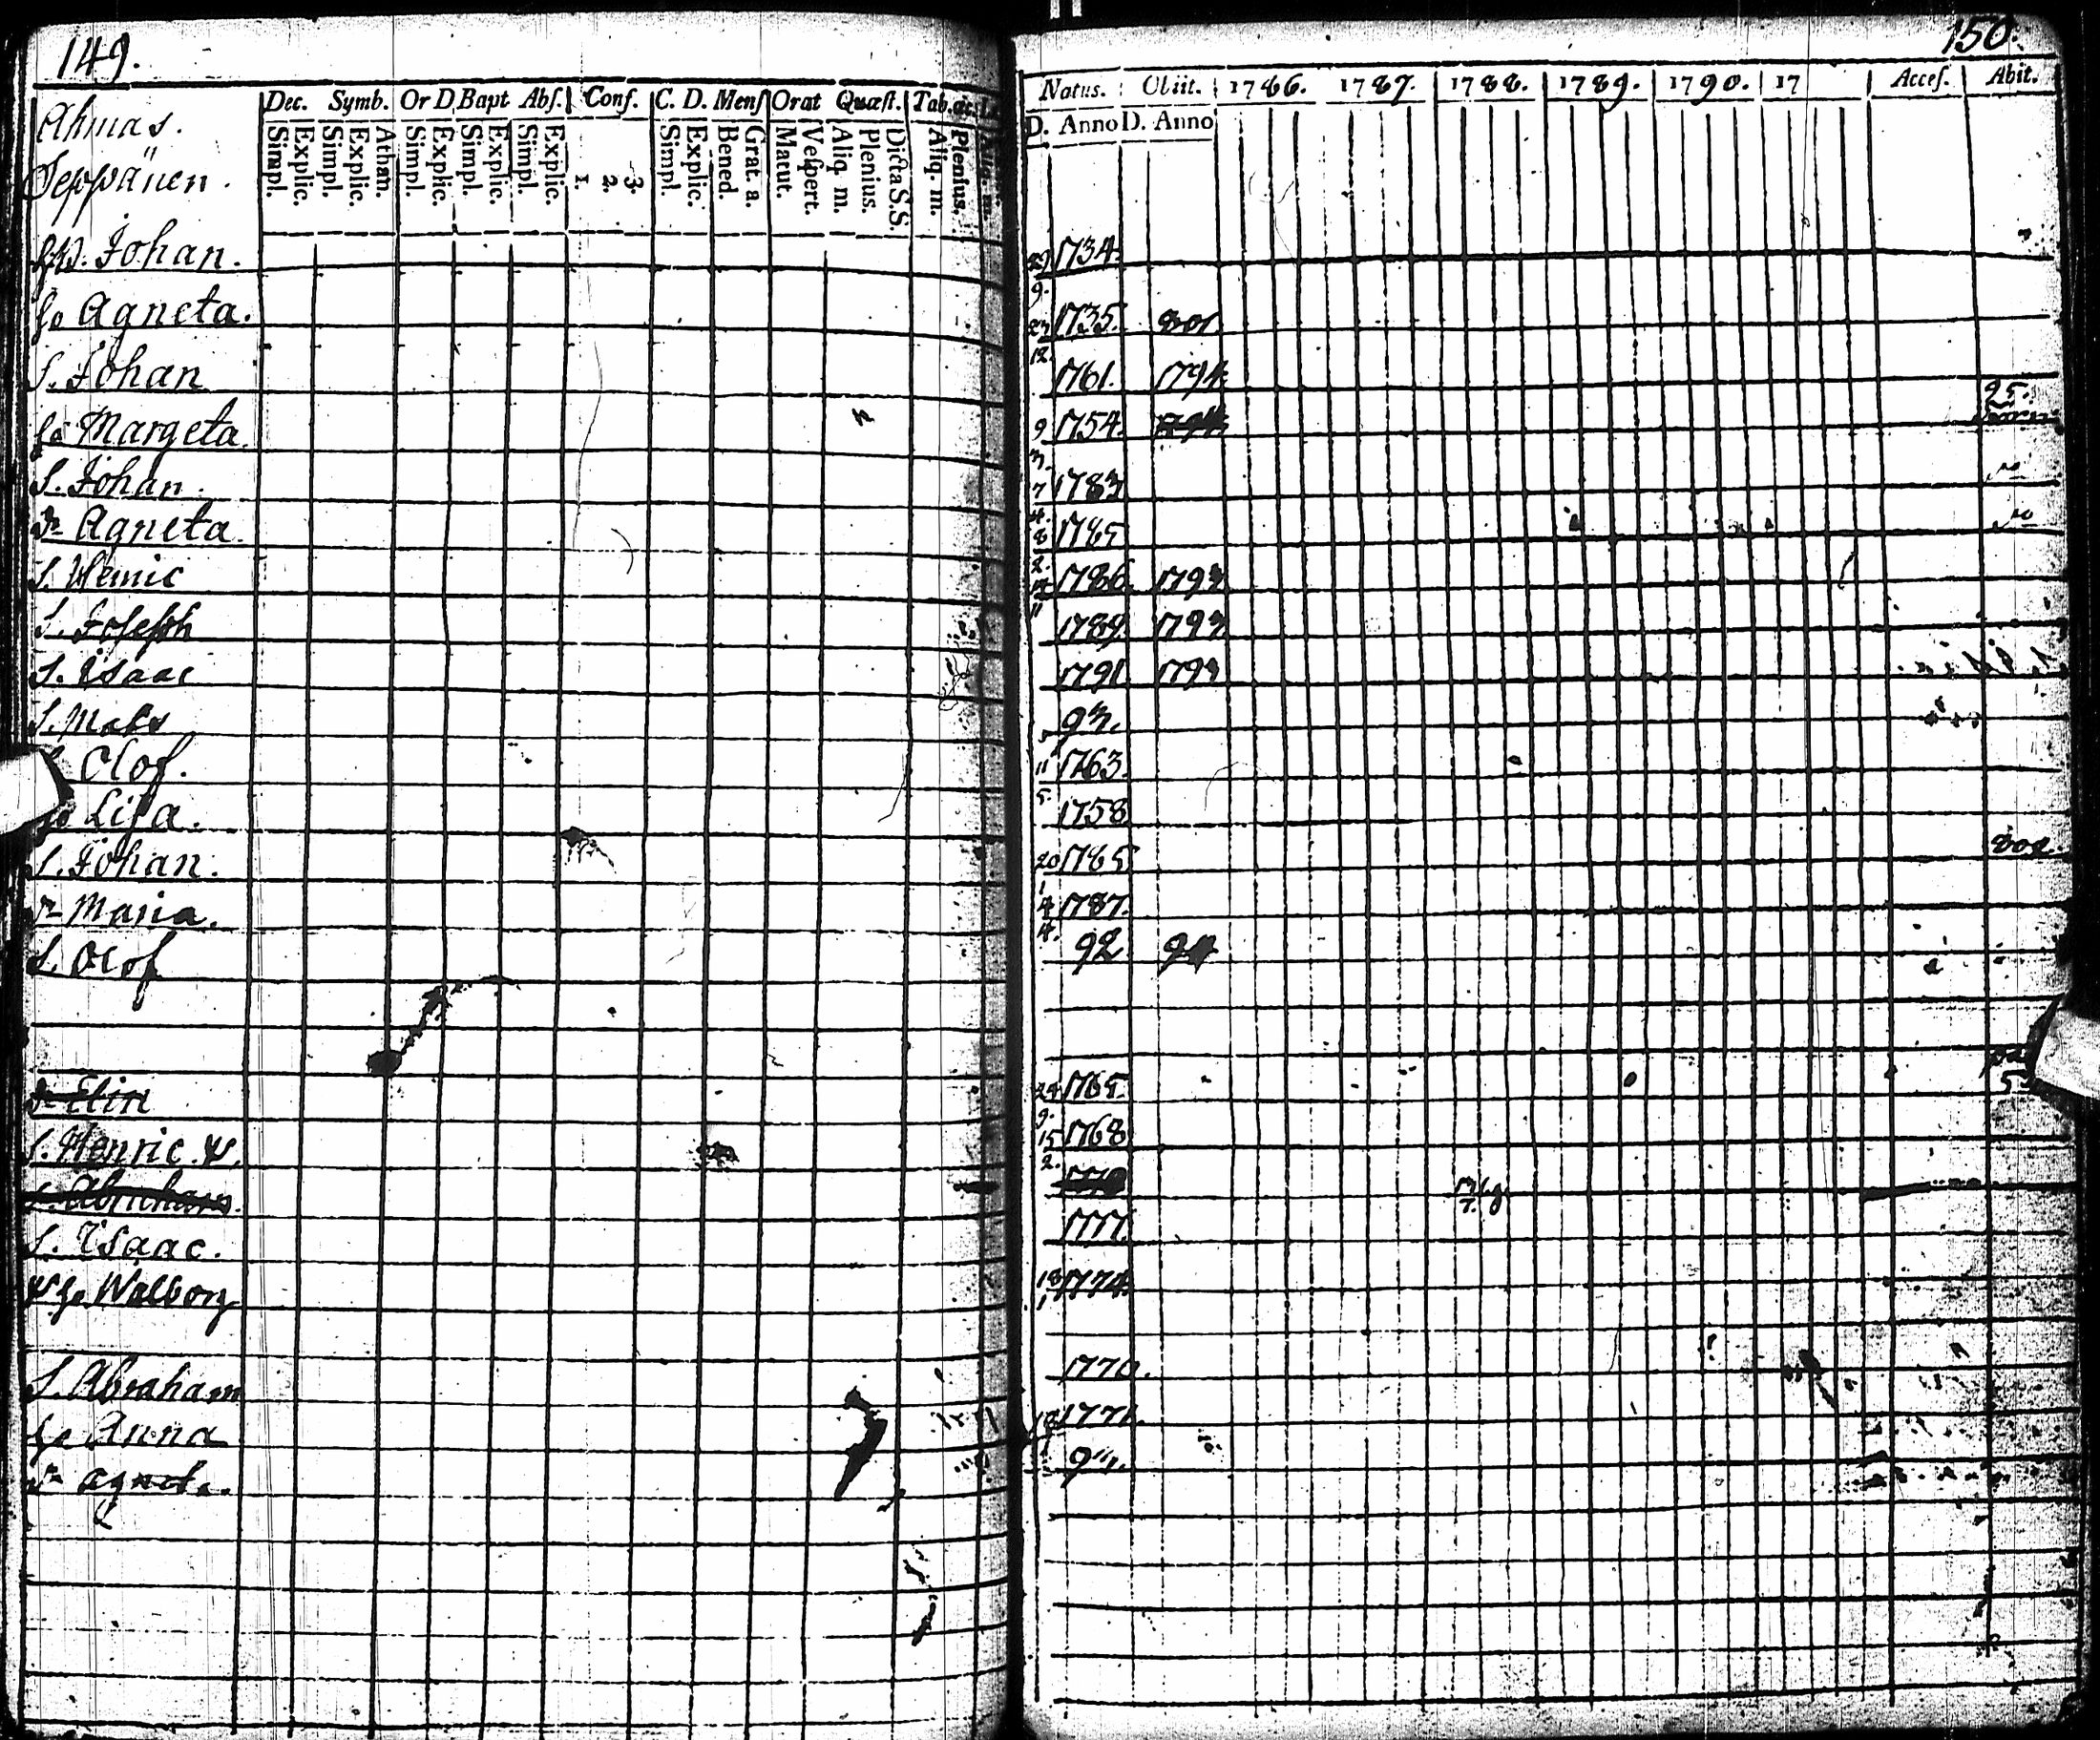 149.
Dec. Symb. Or D. Bapt Abs. Conf. C. D. Mens Orat Quæst. Tab. æc.
Ahmas.
Simpl. Explic. Simpl. Explic. Athan. Simpl. Explic. Simpl. Explic. Simpl. Explic. 1. 2. 3. Simpl. Explic. Bened. Grat. a. Matut. Vespert. Aliq. m. Plenius. Dicta S.S. Aliq. m. Plenius. Aliq. m.
Seppänen.
Johan.
Agneta.
S. Johan
Margeta.
S. Johan.
Agneta.
S. Henric
S. Joseph
S. Isaac
S. Mats
Olof.
Lisa.
S. Johan.
Maria.
S. Olof
Elin
S. Henric
S. Abraham
S. Isaac.
Walborg
S. Abraham
Anna
Agneta.
150.
Natus. Obiit. 1786. 1787. 1788. 1789. 1790. 17 Acces. Abit.
D. Anno D. Anno
29 1734.
9.
23 1735. 801
12.
1761. 1794.
95.
9 1754. 1794
3.
7 1783
4.
8 1785
2.
1786. 1793
11
1789. 1793
1791. 1793
93.
11 1763.
5.
1758
20 1785 802.
1
4 1787.
4.
92
24 1765.
9.
15 1768
2.
1770
1777.
18 1774.
1
1770.
18 1771.